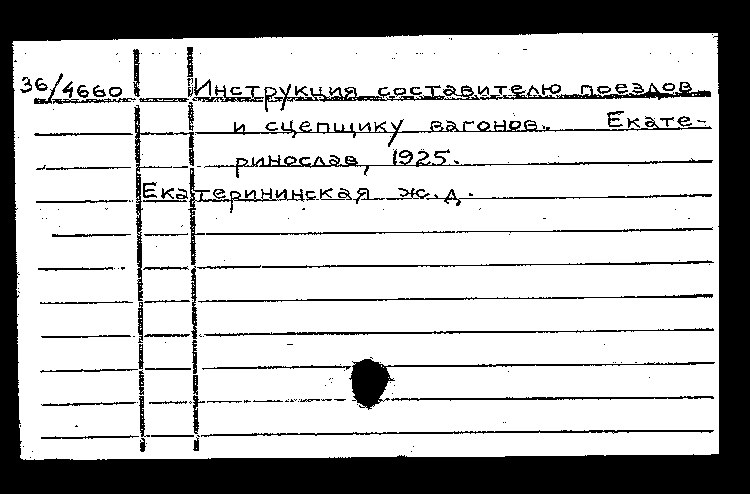 36/4660 Инструкция составителю поездов
и сцепщику вагонов. Екате-
ринослав, 1925.
Екатерининская ж.д.